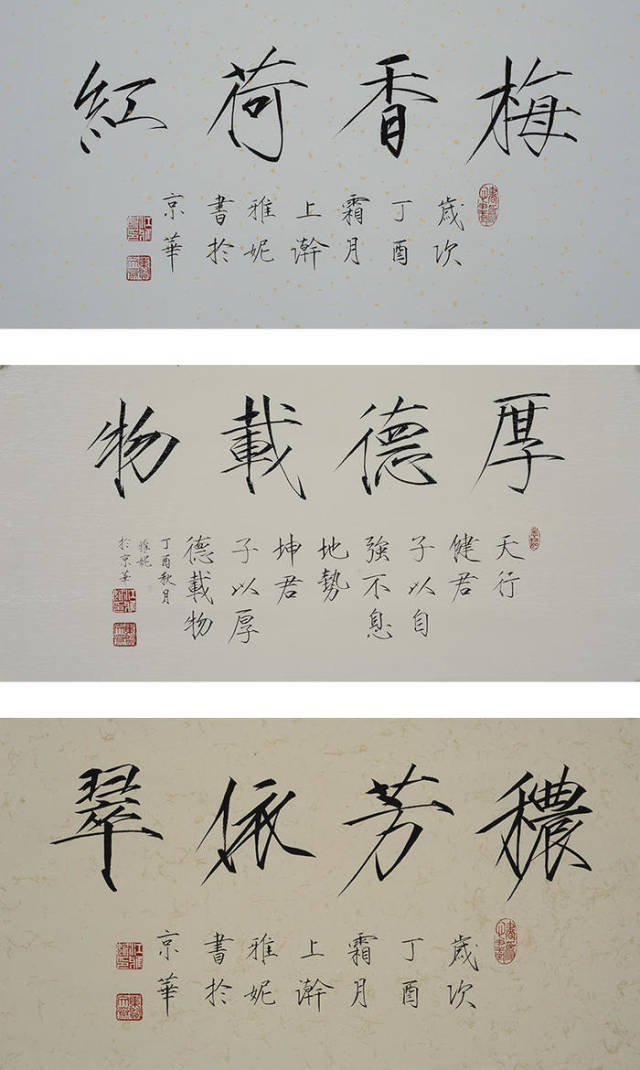 梅香荷紅
歲次
丁酉
霜月
上澣
雅妮
書於
京華
厚德載物
天行
健君
子以自
強不息
地勢
坤君
子以厚
德載物
丁酉秋月
雅妮
於京華
穠芳依翠
歲次
丁酉
霜月
上澣
雅妮
書於
京華